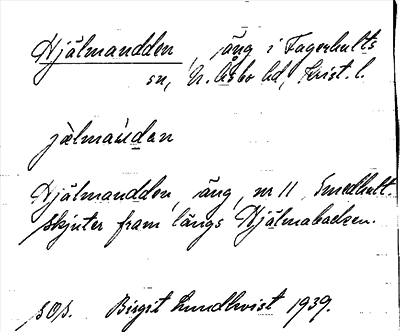 Hjälmaudden, äng i Fagerhults
sn, N. Åsbo hd, Krist. l.
jälmau̇dan
Hjälmaudden, äng, nr 11 Smedhult.
skjuter fram längs Hjälmabacken.
sOp. Birgit Lundkvist 1939.